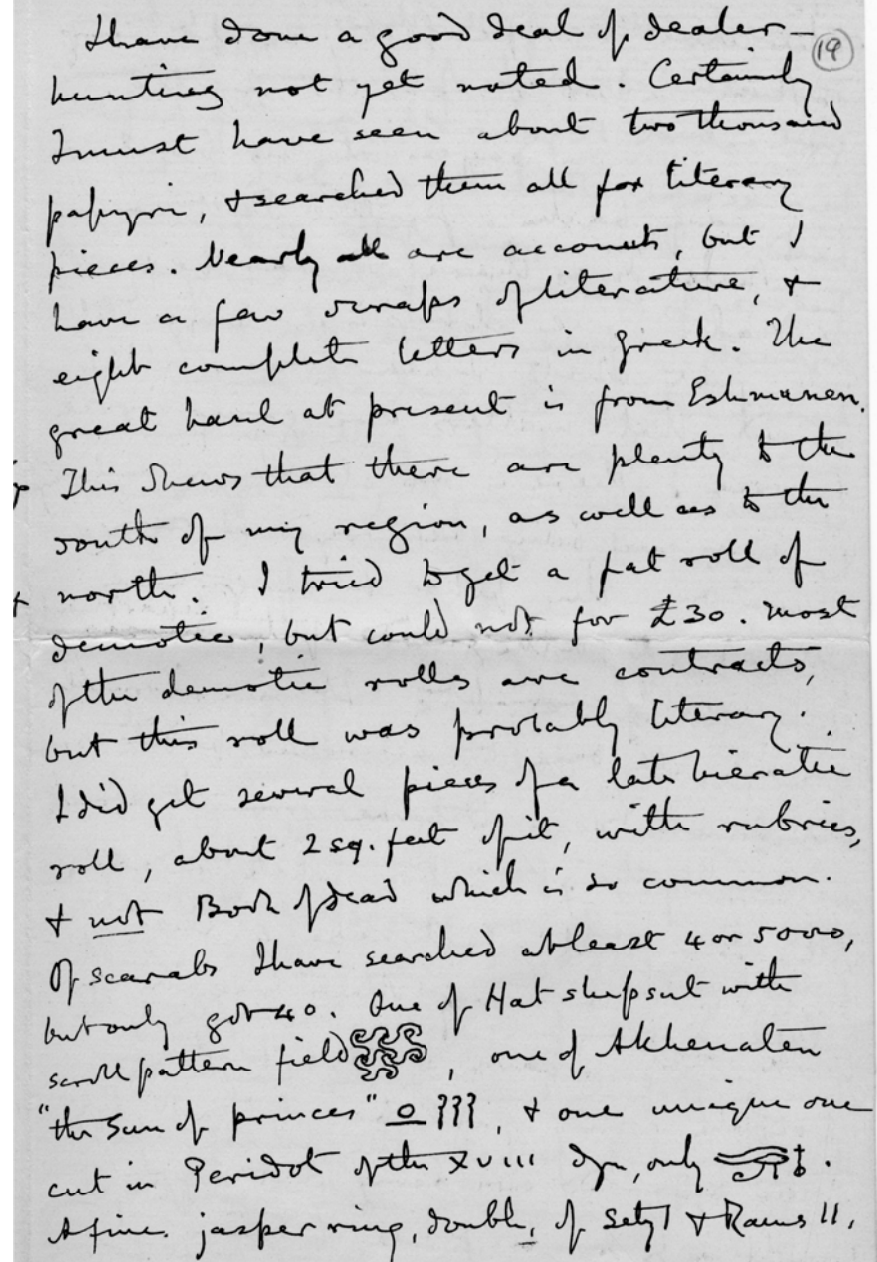 I have done a good deal of dealer-
19
hunting not yet noted. Certainly
I must have seen about two thousand
papyri, & searched them all for literary
pieces. Nearly all are accounts, but I
have a few scraps of literature, &
eight complete letters in Greek. The
great haul at present is from Eshmunen.
This shews that there are plenty to the
south of my region, as well as to the
north. I tried to get a fat roll of
demotic, but could not for £30. Most
of the demotic rolls are contracts,
but this roll was probably literary.
I did get several pieces of a late hieratic
roll, about 2 sq. feet of it, with rubrics,
& not Book of Dead which is so common.
Of scarabs I have searched at least 4 or 5000,
but only got 40. One of Hatshepsut with
scroll pattern field, one of Akhenaten
"the Sun of princes", & one unique one
cut in Peridot of the XVIII dyn, only .
A fine jasper ring, double, of Sety I & Rams II,